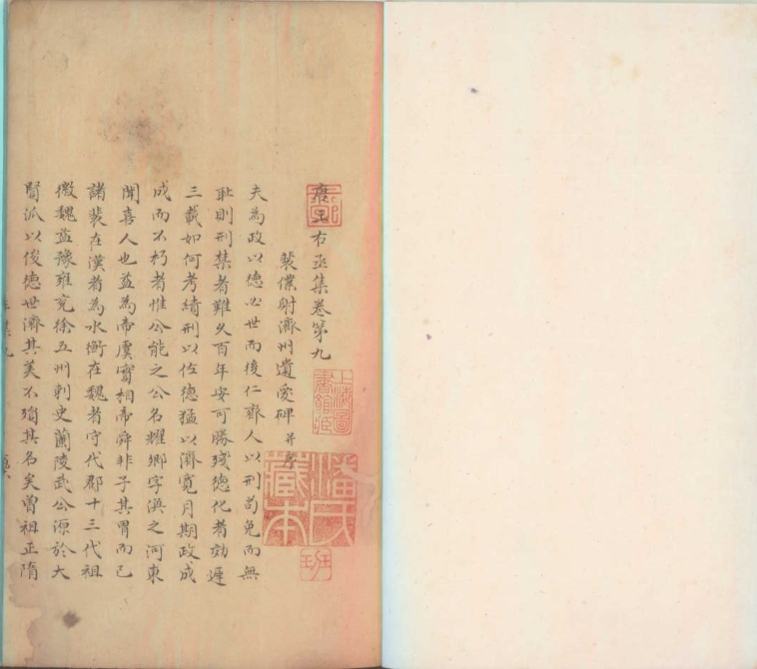 唐王右丞集卷第九
裴僕射濟州遺愛碑 并序
夫為政以德必世而後仁齊人以刑苟免而無
耻則刑禁者難久百年安可勝殘德化者効遲
三載如何考績刑以佐德猛以濟寬月期政成
成而不朽者惟公能之公名耀卿字渙之河東
聞喜人也益為帝虞實相帝舜非子其胃而已
諸裴在漢者為水衡在魏者守代郡十三代祖
徽魏益豫雍兗徐五州刺史蘭陵武公源於大
賢派以俊德世濟其美不殞其名矣曾祖正隋
上海圖書館藏
潘氏藏本